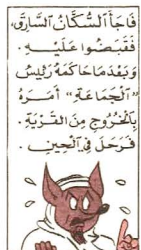 فَاجَأَ السُّكَّانُ السَّارِقَ،
فَقَبَضُوا عَلَيْهِ.
وَبَعْدَمَا حَاكَمَهُ رَئِيسُ
"الْجَمَاعَةِ" أَمَرَهُ
بِالْخُرُوجِ مِنَ الْقَرْيَةِ.
فَرَحَلَ فِي الْحِينِ.